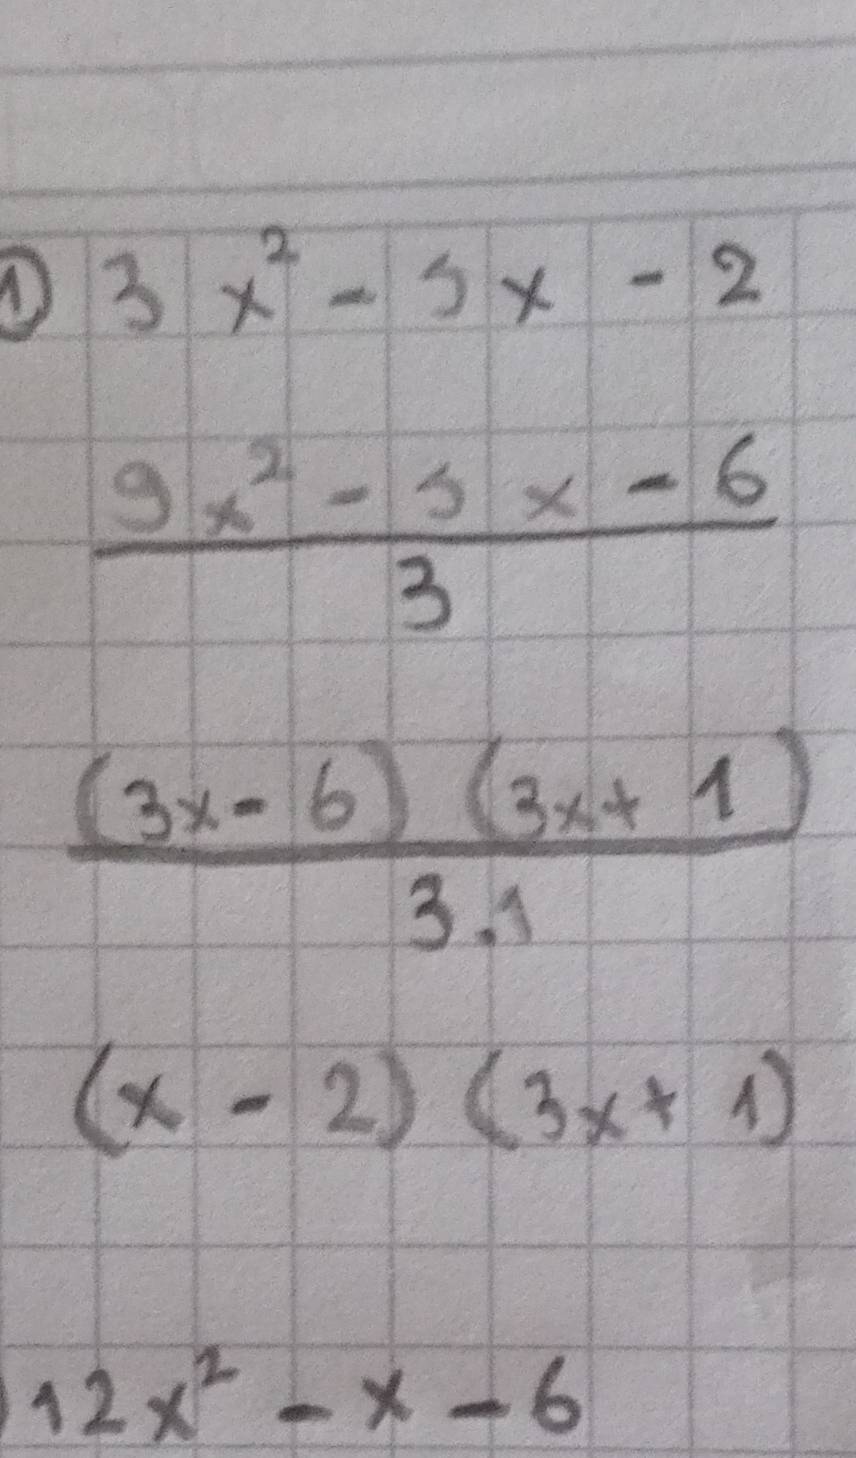 ① 3x² - 5x - 2
9x² - 5x - 6
3
(3x - 6) (3x + 1)
3.1
(x - 2) (3x + 1)
) 12x² - x - 6